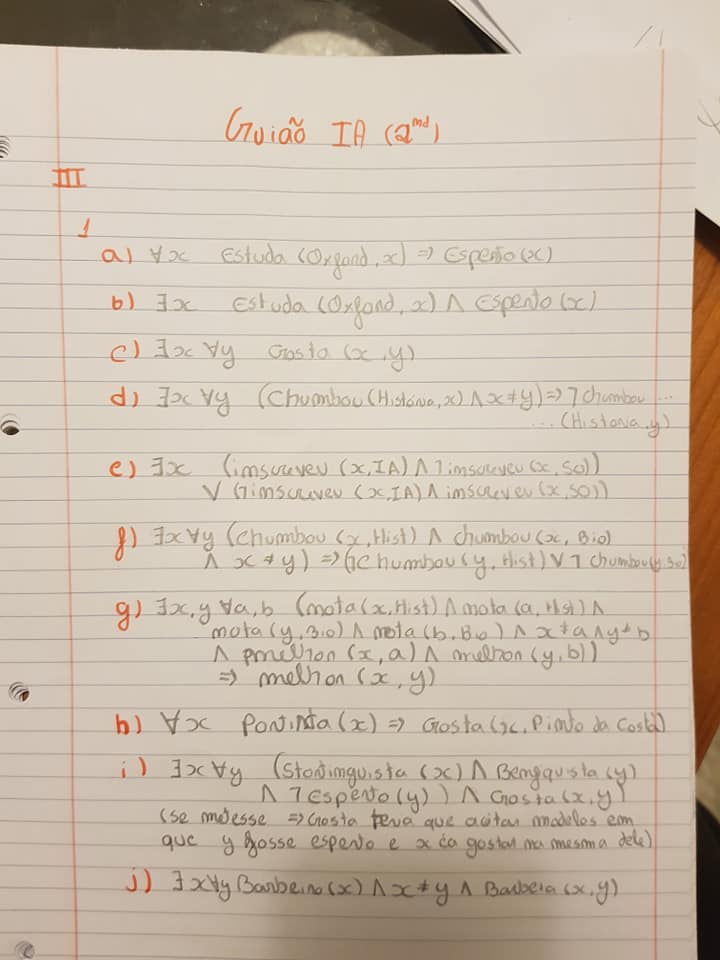 Guião IA (2nd)
III
1
a) ∀x Estuda (Oxford, x) => Esperto (x)
b) ∃x Estuda (Oxford, x) ∧ Esperto (x)
c) ∃x ∀y Gosta (x, y)
d) ∃x ∀y (Chumbou (História, x) ∧ x ≠ y) => ¬ chumbou ...
... (Historia, y)
e) ∃x (inscreveu (x, IA) ∧ ¬ inscreveu (x, SO))
∨ (¬ inscreveu (x, IA) ∧ inscreveu (x, SO))
f) ∃x ∀y (Chumbou (x, Hist) ∧ chumbou (x, Bio)
∧ x ≠ y) => (¬ Chumbou (y, Hist) ∨ ¬ chumbou (y, Bio)
g) ∃x, y ∀a, b (nota (x, Hist) ∧ nota (a, Hist) ∧
nota (y, Bio) ∧ nota (b, Bio) ∧ x ≠ a ∧ y ≠ b
∧ melhor (x, a) ∧ melhor (y, b))
=> melhor (x, y)
h) ∀x Portista (x) => Gosta (x, Pinto da Costa)
i) ∃x ∀y (Sportinguista (x) ∧ Benfiquista (y)
∧ ¬ Esperto (y)) ∧ Gosta (x, y)
(se metesse => Gosta teria que aceitar modelos em
que y fosse esperto e x ia gostar na mesma dele)
j) ∃x ∀y Barbeiro (x) ∧ x ≠ y ∧ Barbeia (x, y)